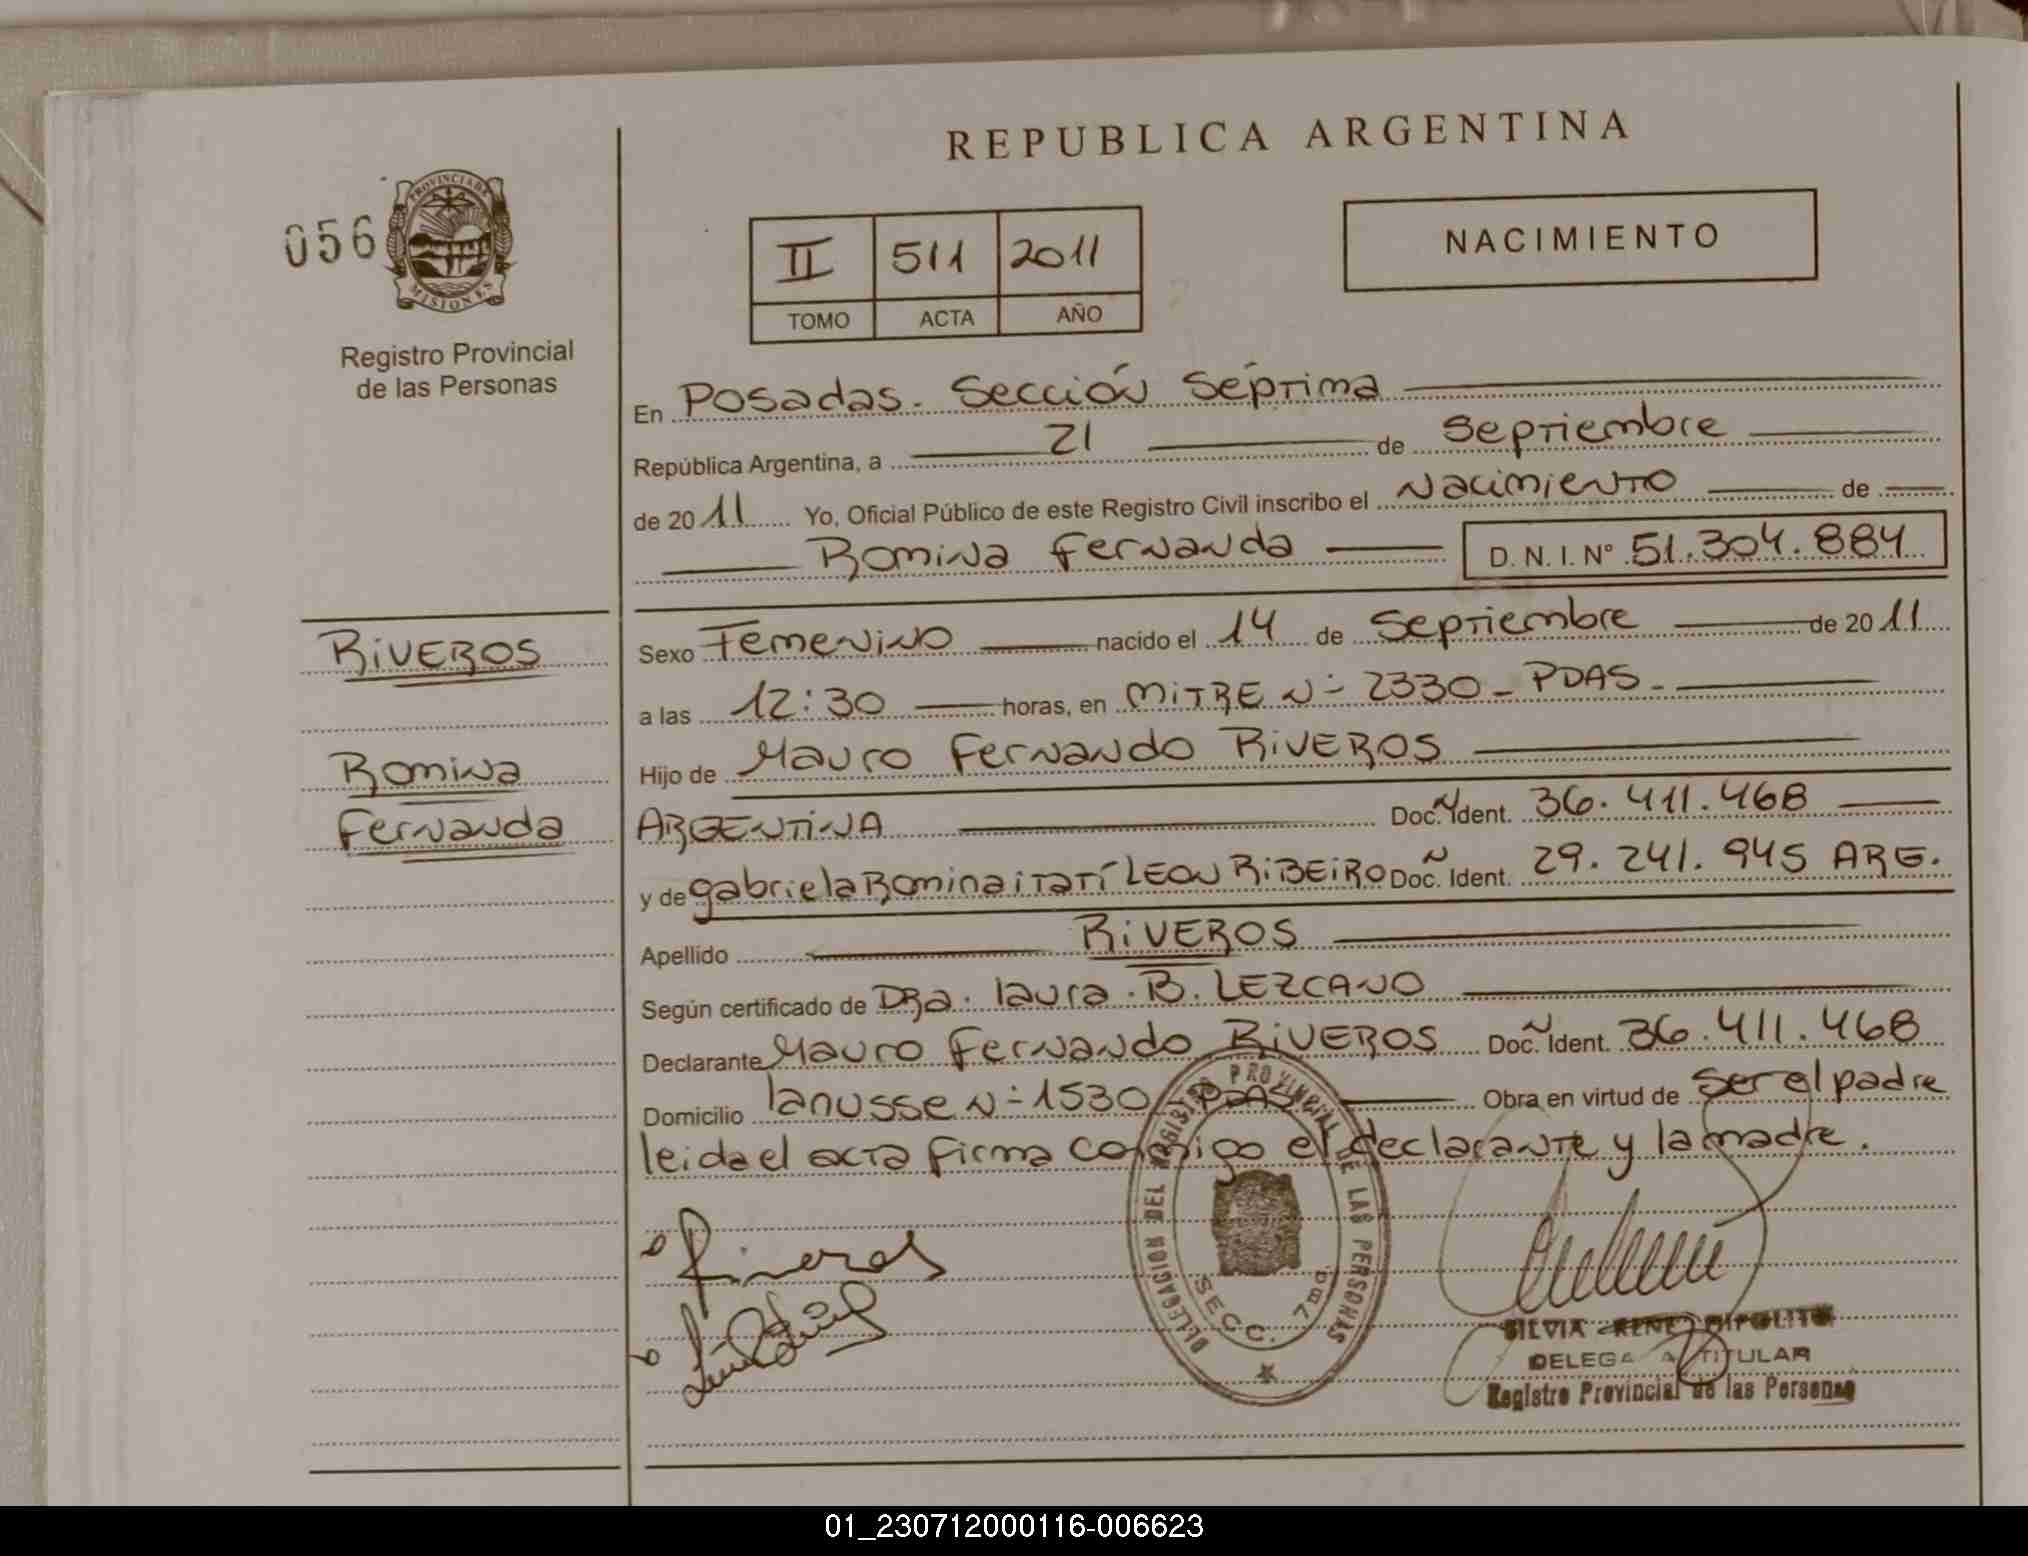 REPUBLICA ARGENTINA
056
PROVINCIA DE
MISIONES
Registro Provincial
de las Personas
II 511 2011
TOMO ACTA AÑO
NACIMIENTO
En Posadas. Sección Séptima
República Argentina, a 21 de Septiembre
de 2011 Yo, Oficial Público de este Registro Civil inscribo el Nacimiento de
Romina Fernanda D. N. I. Nº 51.304.884
RIVEROS
Romina
Fernanda
Sexo Femenino nacido el 14 de Septiembre de 2011
a las 12:30 horas, en MITRE N- 2330 - PDAS -
Hijo de Mauro Fernando RIVEROS
ARGENTINA Doc. Ident. 36.411.468
y de gabriela Romina itatí LEON RIBEIRO Doc. Ident. 29.241.945 ARG.
Apellido RIVEROS
Según certificado de DRa. laura B. LEZCANO
Declarante Mauro Fernando RIVEROS Doc. Ident. 36.411.468
Domicilio lanusse N- 1530 PDAS Obra en virtud de ser el padre
leida el acta firma conmigo el declarante y la madre.
Riveros
DELEGACION DEL REGISTRO PROVINCIAL DE LAS PERSONAS
SECC. 7ma.
SILVIA RENE HIPOLITO
DELEGADA TITULAR
Registro Provincial de las Personas
01_230712000116-006623